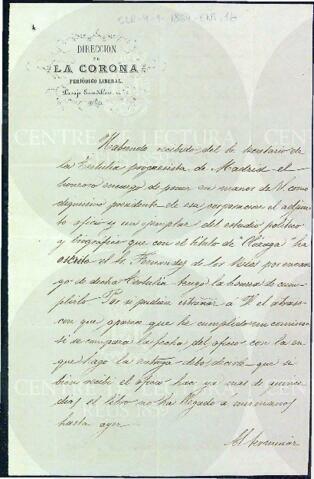 CLR-4-1-1864-ENR.16
DIRECCION
DE
LA CORONA
PERIÓDICO LIBERAL.
Habiendo recibido del Sr. secretario de
la Tertulia progresista de Madrid el
honroso encargo de poner en manos de V. como
dignisimo presidente de esa corporacion el adjun
to oficio y un ejemplar del estudio politico
y biografico que con el titulo de "Olózaga" ha
escrito el Sr. Fernandez de los Rios por encar
go de dicha Tertulia tengo la honra de cum
plirlo. Por si pudiera estrañar a V. el atraso
con que aparece que he cumplido mi comision
si se compara la fecha del oficio con la en
que hago la entrega debo decirle que si
bien recibí el oficio hace ya mas de quince
dias el libro no ha llegado a mis manos
hasta ayer.
Al terminar
CENTRE DE LECTURA
REUS 1859